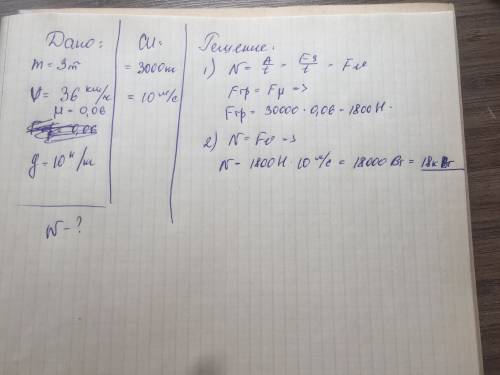 Дано:
m = 3т
V = 36 км/ч
μ = 0,06
g = 10 н/м
N - ?
СИ:
= 3000т
= 10 м/с
Решение.
1) N = A/t = FS/t = Fv
Fтр = Fμ =>
Fтр = 30000 · 0,06 = 1800 Н.
2) N = Fv =>
N = 1800Н · 10 м/с = 18000 Вт = 18кВт